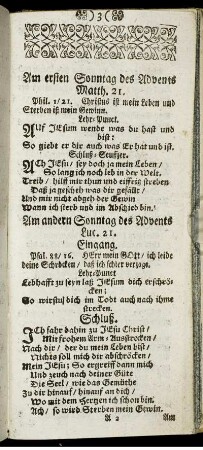 ) 3 (
Am ersten Sonntag des Advents
Matth. 21.
Phil. 1/21. Christus ist mein Leben und
Sterben ist mein Gewinn.
Lehr-Punct.
Auf JEsum wende was du hast und
bist:
So giebt er dir auch was Er hat und ist.
Schluß-Seuffzer.
ACh JEsu/ sey doch ja mein Leben/
So lang ich noch leb in der Welt.
Treib/ hilff mir thun und eiffrig streben
Daß ja gescheh was dir gefällt/
Und mir nicht abgeh der Gewin
Wann ich sterb und im Abschied bin.
Am andern Sonntag des Advents
Luc. 21.
Eingang.
Psal. 88/16. HErr mein GOtt/ ich leide
deine Schröcken/ daß ich schier verzage.
Lehr-Punct
Lebhafft zu seyn laß JEsum dich erschrö-
cken;
So wirstu dich im Todt auch nach ihme
strecken.
Schluß.
ICh fahr dahin zu JEsu Christ/
Mit frohem Arm-Ausstrecken/
Nach dir/ der du mein Leben bist/
Nichts soll mich dir abschröcken/
Mein JEsu; So ergreiff dann mich
Und zeuch nach deiner Güte
Die Seel/ wie das Gemüthe
Zu dir hinauf/ hinauf an dich/
Wo mit dem Hertzen ich schon bin.
Ach/ so wird Sterben mein Gewin.
A 2 Am